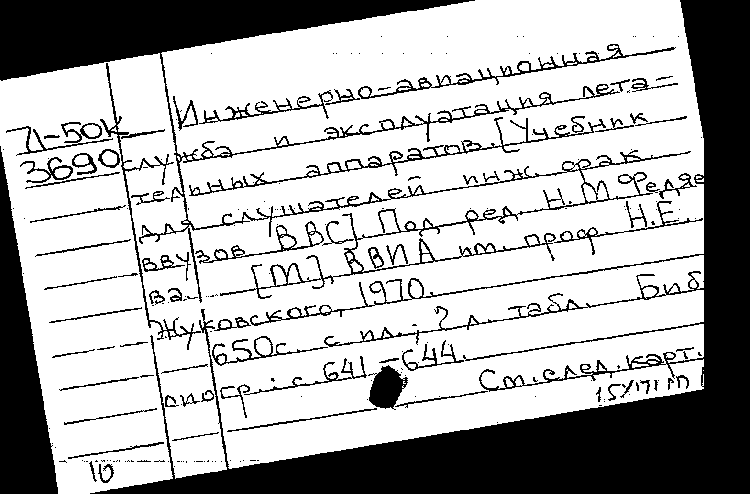 71-50К
3690
Инженерно-авиационная
служба и эксплуатация лета-
тельных аппаратов. [Учебник
для слушателей инж. фак.
ввузов ВВС]. Под ред. Н.М Федяе
ва. [М], ВВИА им. проф. Н.Е.
Жуковского, 1970.
650с. с ил.; 2 л. табл. Биб
лиогр.: с. 641-644.
См. след. карт.
10